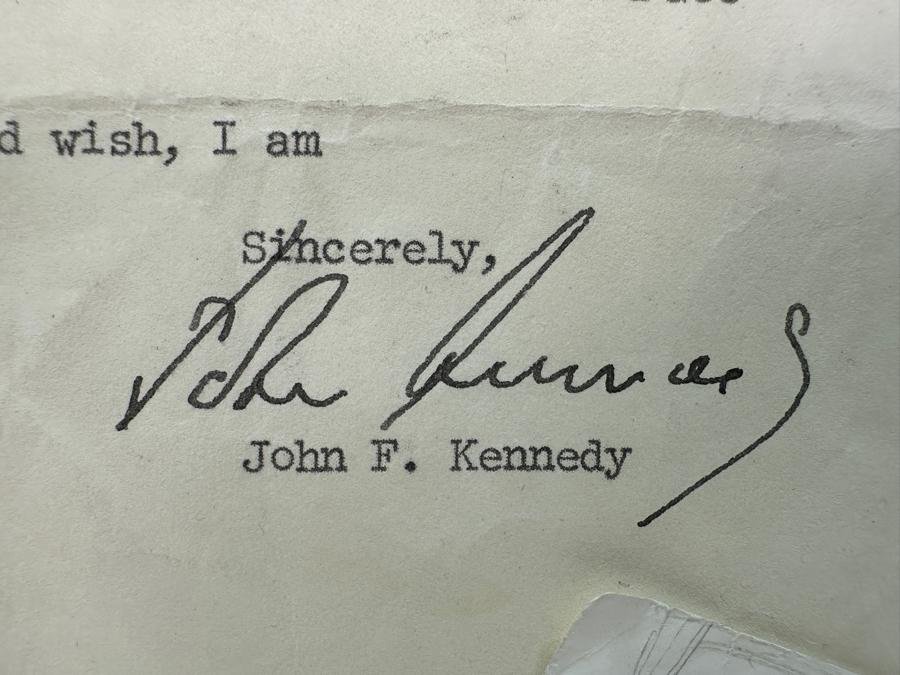 d wish, I am
Sincerely,
John Kennedy
John F. Kennedy